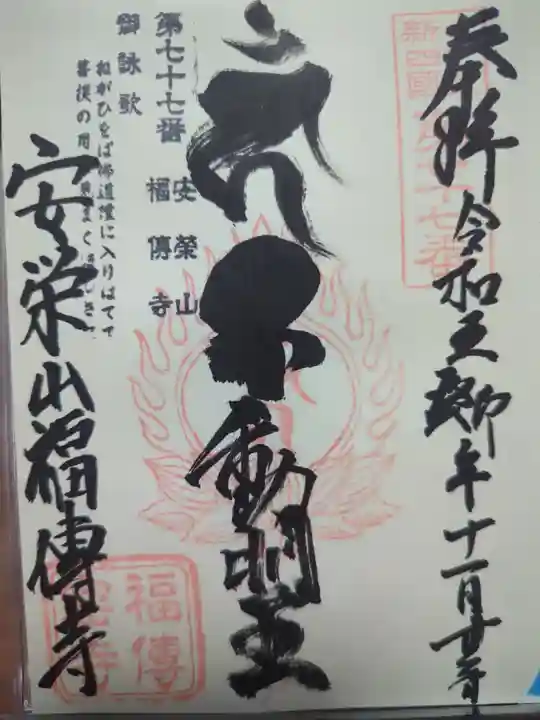 奉拝 令和五癸卯年十一月廿
新四國
七十七番
不動明王
第七十七番 安榮山
福傳寺
御詠歌
ねがひをば佛道壇に入りはてて
菩提の月
安栄山福傳寺
福傳
寺